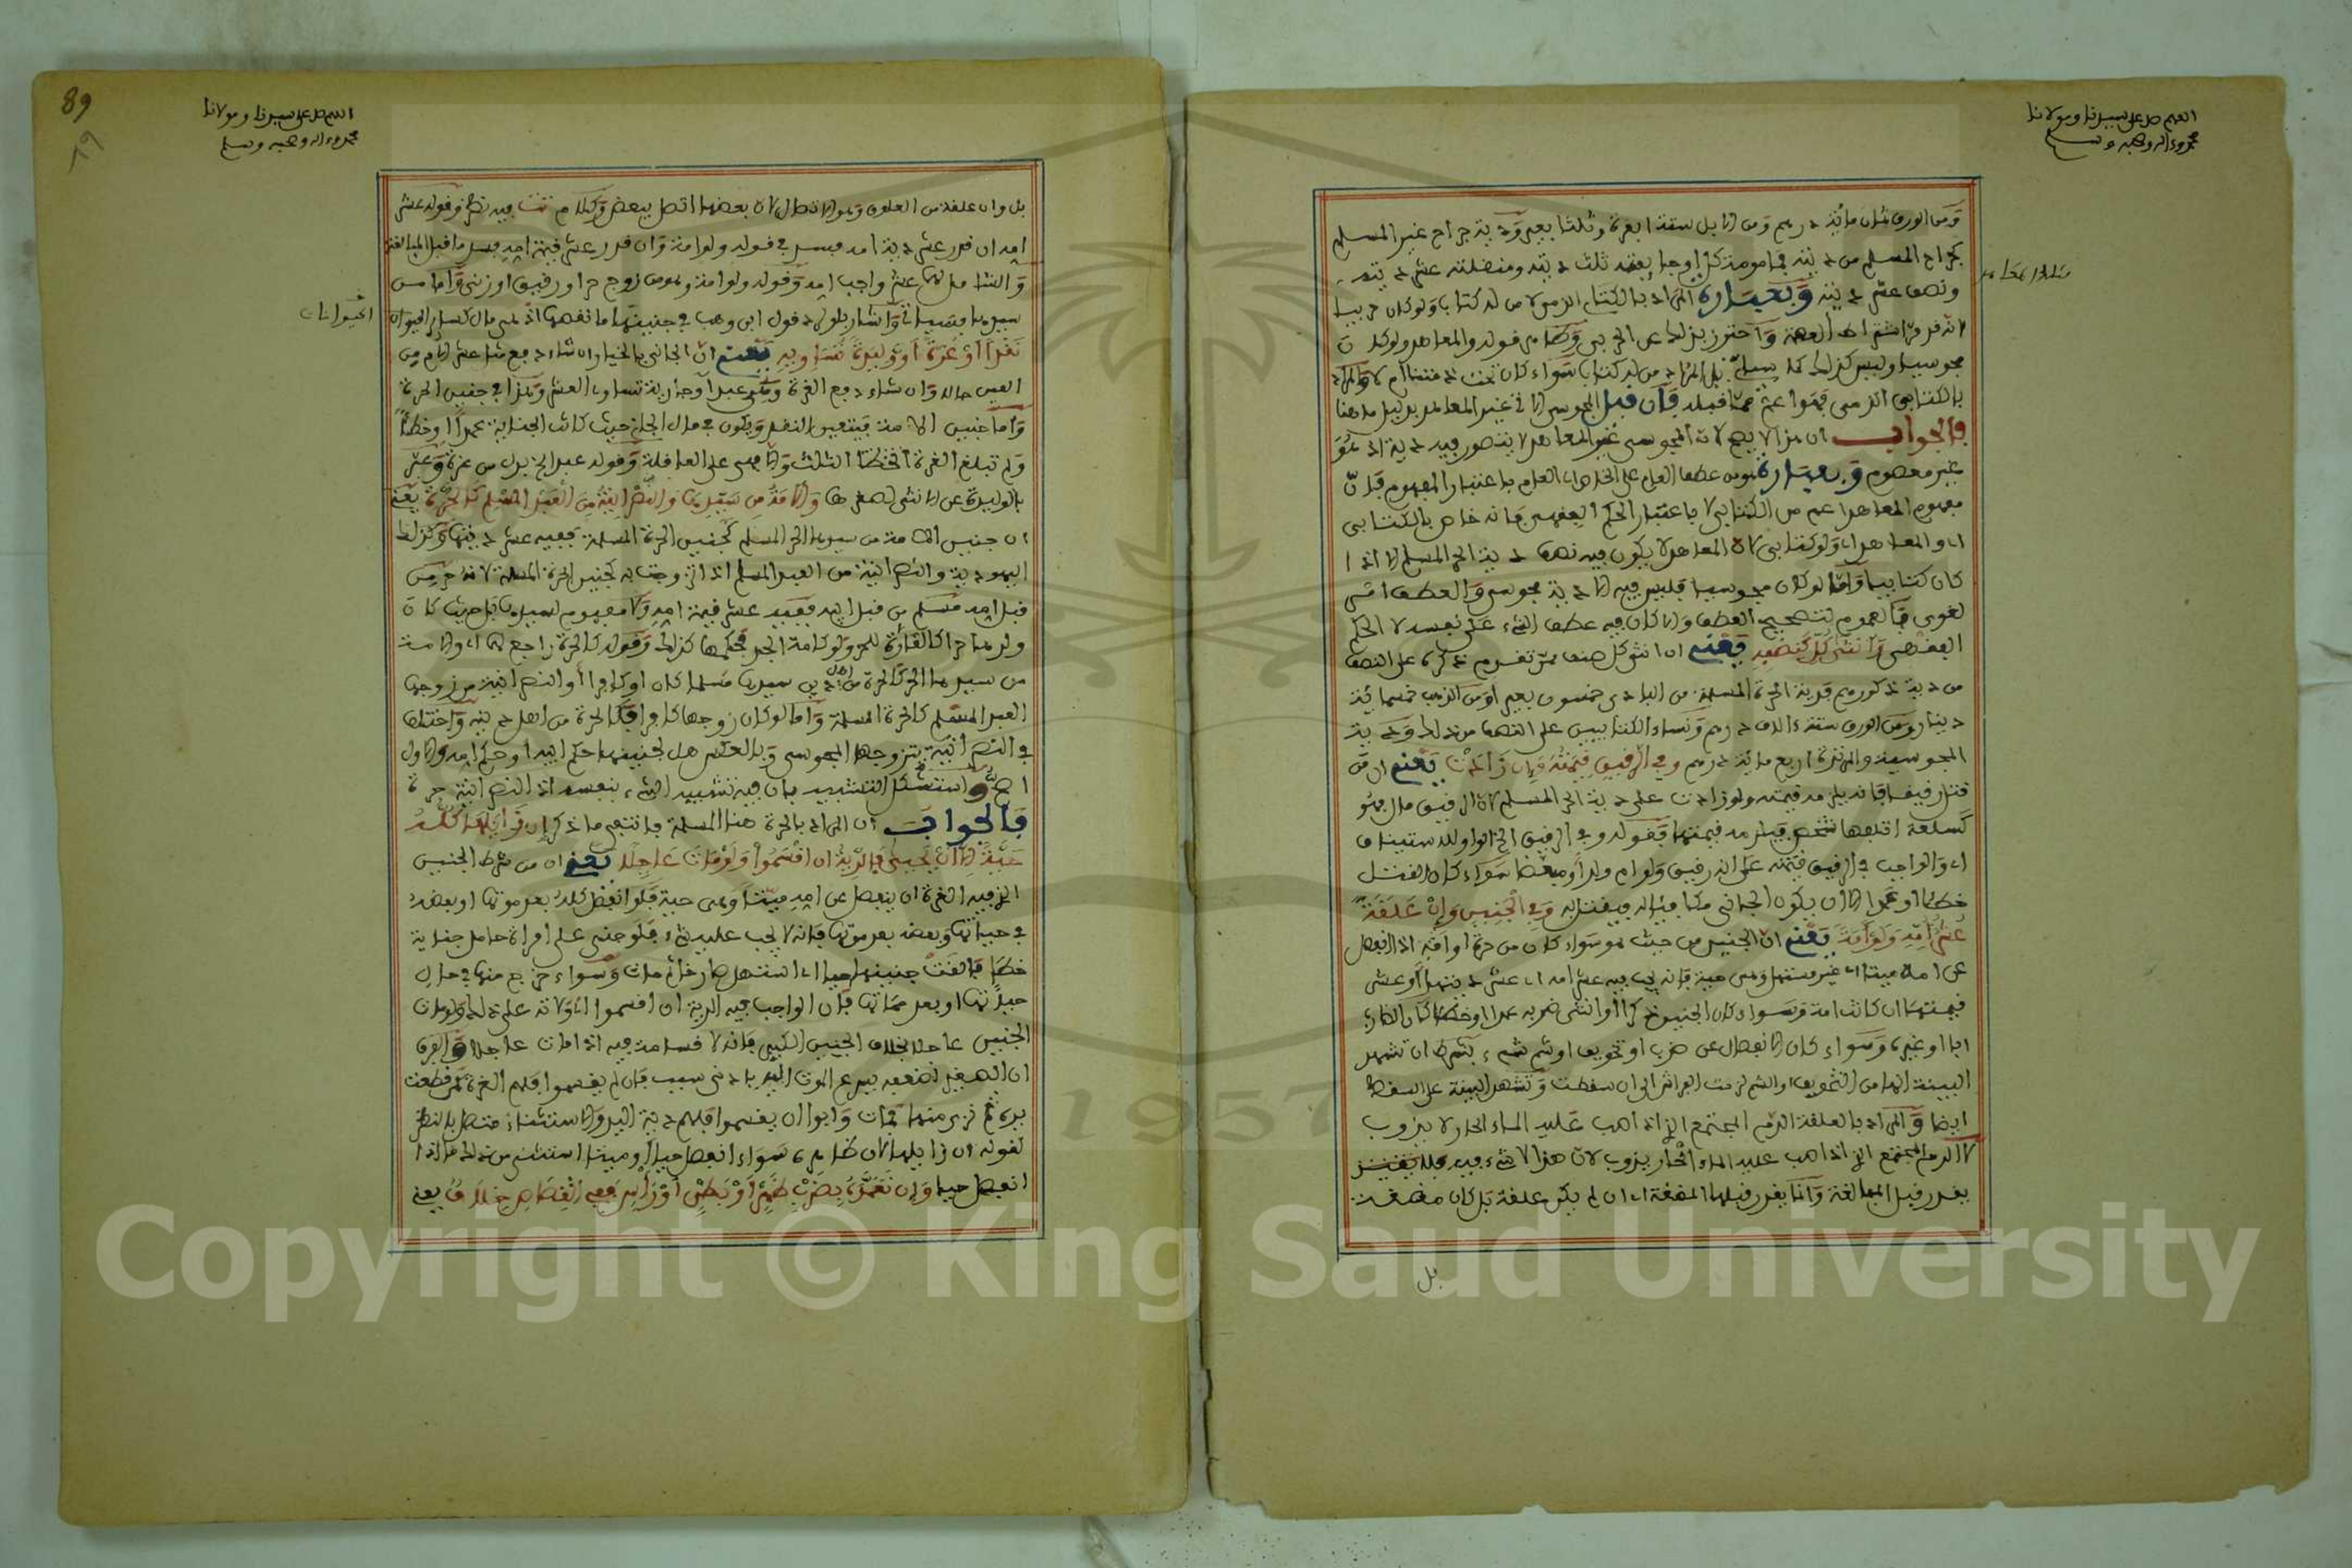 اللهم صل على سيدنا ومولانا
محمد وءاله وصحبه وسلم
ومن الورق ثمان مائة درهم ومن الابل ستة ابعرة وثلثا بعير ودية جراح غير المسلم
كجراح المسلم من ديته ففي مامومة كل او جائفته ثلث ديته ومنقلته عشر ديته
ونصف عشر ديته وبعبارة المراد بالكتابي الذمي لا من له كتاب ولو كان حربيا
لانه قدم اشتراط العصمة واحترز بذلك عن الحربي قوله والمعاهد ولو كان
مجوسيا وليس كذلك كما بل المراد من له كتاب سواء كان تحت ذمتنا ام لا والمراد
بالكتابي الذمي فهو اعم مما قبله فان قيل المجوسي في غير المعاهد بدليل ما هنا
فالجواب ان هذا لا يصح لان المجوسي غير المعاهد لا يتصور فيه دية اذ هو
غير معصوم وبعبارة هو من عطف العام على الخاص اي العام باعتبار المفهوم فان
مفهوم المعاهد اعم من الكتابي لا باعتبار الحكم الفقهي فانه خاص بالكتابي
اي والمعاهد اي ولو كتابي لان المعاهد لا يكون فيه نصف دية الحر المسلم الا اذا
كان كتابيا واما لو كان مجوسيا فليس فيه الا دية مجوسي والعطف امر
لغوي فالعموم لتصحيح العطف والا كان فيه عطف الشيء على نفسه لا الحكم
الفقهي وانثى كل كنصفه يعني ان انثى كل صنف ممن تقدم ذكره على النصف
من دية ذكورهم فدية الحرة المسلمة من البادي خمسون بعير او من الذهب خمسمائة
دينار ومن الورق ستة ءالاف درهم ونساء الكتابيين على النصف من ذلك ودية
المجوسية والمرتدة اربع مائة درهم وفي الرقيق قيمته وان زادت يعني ان من
قتل رقيقا فانه يلزمه قيمته ولو زادت على دية الحر المسلم لان الرقيق مال فهو
كسلعة اتلفها شخص فيلزمه قيمتها فقوله وفي الرقيق الخ الواو للاستيناف
اي والواجب في الرقيق قيمته على انه رقيق ولو ام ولد او مبعضا سواء كان القتل
خطا او عمدا الا ان يكون الجاني مكافيا له فيقتل به وفي الجنين وان علقة
عشر امه ولو امة يعني ان الجنين من حيث هو سواء كان من حرة او امة اذا انفصل
عن امه ميتا اي غير مستهل وهي حية فانه يجب فيه عشر امه اي عشر ديتها او عشر
قيمتها ان كانت امة وسواء كان الجنين ذكرا او انثى ضربه عمدا او خطا كان الضارب
ابا او غيره وسواء كان الانفصال عن ضرب او تخويف او شم شيء بشرط ان تشهد
البينة انها من التخويف او الشم لزمت الفراش الى ان سقطت وتشهد البينة على السقط
ايضا والمراد بالعلقة الدم المجتمع الذي اذا صب عليه الماء الحار لا يذوب
لا الدم المجتمع الذي اذا صب عليه الماء الحار يذوب لان هذا لا شيء فيه
يقدر قبل المبالغة وانما يقدر قبلها المضغة اي ان لم يكن علقة بل كان مضغة
بل
89
٨٩
اللهم صل على سيدنا ومولانا
محمد وءاله وصحبه وسلم
بل وان علقة من العلوق لان بعضها اتصل ببعض وكلام تت فيه نظر وقوله عشر
امه ان قدر عشر دية امه فيسر في قوله ولو امة وان قدر عشر قيمة امه فيسر ما قبل المبالغة
والشامل لهما عشر واجب امه وقوله ولو امة ولو من زوج حر او رقيق او زنى واما من
سيدها فسياتي واشار بلو لرد قول ابن وهب في جنينها ما نقصها اذ هي مال كسائر الحيوان
الحيوانات
نقدا او غرة او وليدة تساويه يعني ان الجاني بالخيار ان شاء دفع عشر الام من
العين حالا وان شاء دفع الغرة وهي عبد او جارية تساوي العشر وهذا في جنين الحرة
واما جنين الامة فيتعين النقد ويكون في مال الجاني حيث كانت الجناية عمدا او خطأ
ولم تبلغ الغرة في الخطا الثلث والا فهي على العاقلة وقوله عبد الخ بدل من غرة وعبر
بالوليدة عن الانثى لصغرها والامة من سيدها والنصرانية من العبد المسلم كالحرة يعني
ان جنين الامة من سيدها الحر المسلم كجنين الحرة المسلمة ففيه عشر ديتها وكذلك
اليهودية والنصرانية من العبد المسلم اذا تزوجت به كجنين الحرة المسلمة لانه حر من
قبل امه مسلم من قبل ابيه ففيه عشر قيمة امه ولا مفهوم لسيدها بل حيث كان
ولدها حرا كالغارة للحر ولو كامة الجد فحكمها كذلك وقوله كالحرة راجع لهما اي والامة
من سيدها الحر كالحرة من اهل دين سيدها مسلما كان او كافرا او النصرانية من زوجها
العبد المسلم كالحرة المسلمة واما لو كان زوجها كافرا فكالحرة من اهل دينه واختلف
في النصرانية يتزوجها المجوسي وبالعكس هل لجنينها حكم ابيه او حكم امه والاول
اصح واستشكل التشبيه بان فيه تشبيه الشيء بنفسه اذ النصرانية حرة
فالجواب ان المراد بالحرة هنا المسلمة فانتفى ما ذكر ان زايلها كله
حية الا ان يحيى فالدية ان اقسموا ولو مات عاجلا يعني ان من شرط الجنين
الذي فيه الغرة ان ينفصل عن امه ميتا وهي حية فلو انفصل كله بعد موتها او بعضه
في حياتها وبعضه بعد موتها فانه لا يجب عليه شيء فلو جنى على امراة حامل جناية
خطا فالقت جنينها حيا اي استهل صارخا ثم مات وسواء خرج منها في حال
حياتها او بعد مماتها فان الواجب فيه الدية ان اقسموا اي ولاته على ذلك ولو مات
الجنين عاجلا بخلاف الجنين الكبير فانه لا قسامة فيه اذا مات عاجلا والفرق
ان الصغير لضعفه يسرع الموت اليه بادنى سبب فان لم يقسموا فلهم الغرة كمن قطعت
يده ثم نزى منها فمات وابوا ان يقسموا فلهم دية اليد والاستثناء متصل بالنظر
لقوله ان زايلها لان ظاهره سواء انفصل حيا او ميتا استثنى من ذلك ما اذا
انفصل حيا وان تعمده بضرب ظهر او بطن او راس ففي القصاص خلاف يعني
Copyright © King Saud University
1957